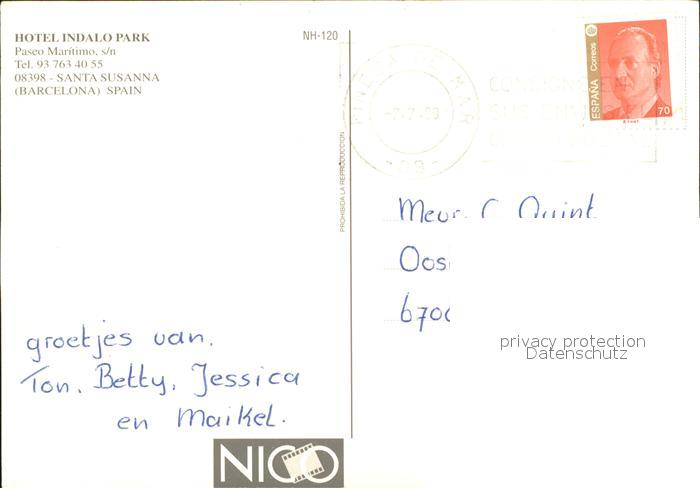 HOTEL INDALO PARK
Paseo Marítimo, s/n
Tel. 93 763 40 55
08398 - SANTA SUSANNA
(BARCELONA) SPAIN
NH-120
PROHIBIDA LA REPRODUCCION
PINEDA DE MAR
CONSIGNE EN
ESPAÑA
Correos
70
Mevr. C Quint
Oos
6700
privacy protection
Datenschutz
groetjes van.
Ton. Betty. Jessica
en Maikel.
NICO